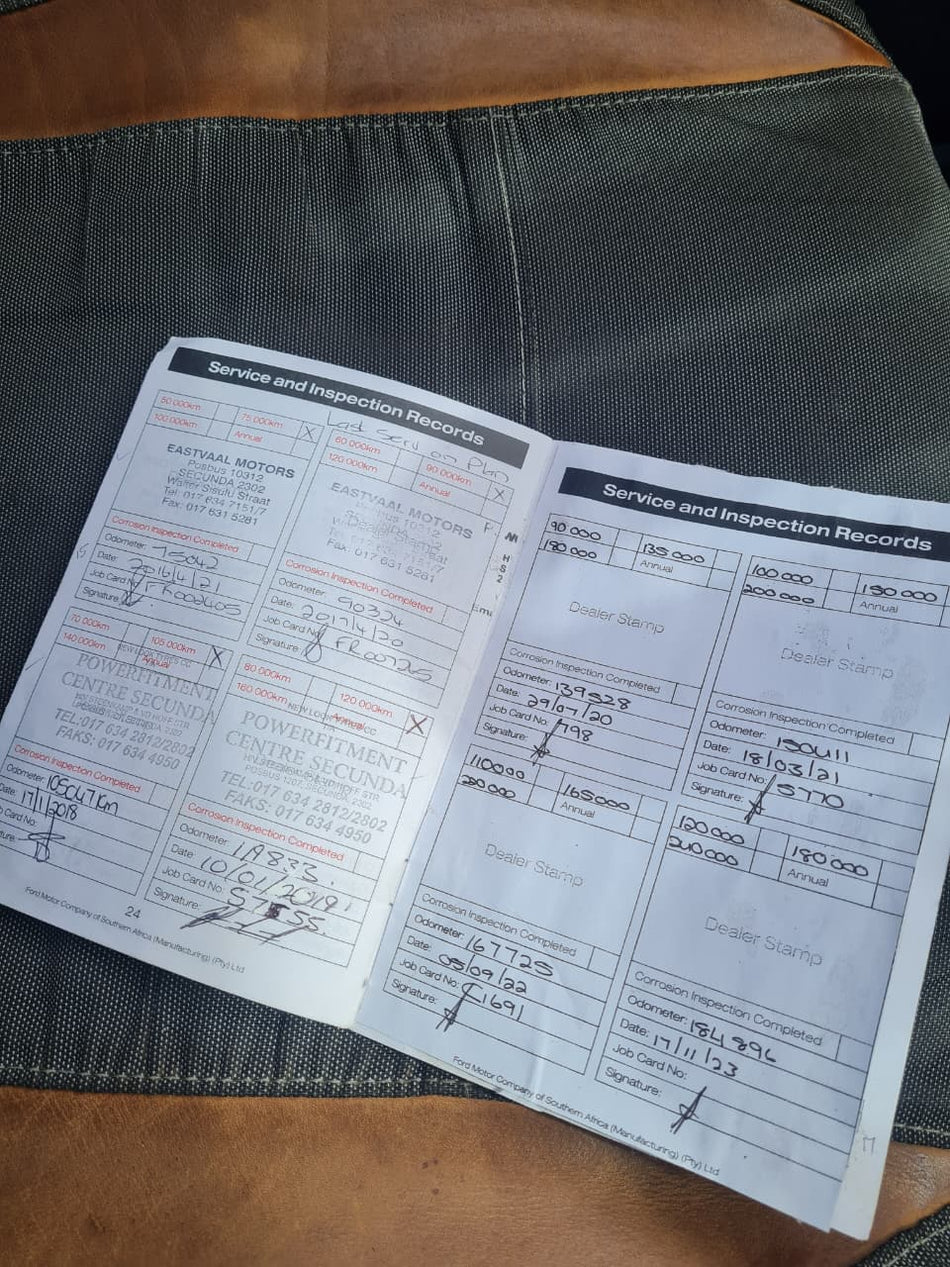 Service and Inspection Records
50 000km
75 000km
X
100 000km
Annual
EASTVAAL MOTORS
Posbus 10312
SECUNDA 2302
Walter Sisulu Straat
Tel: 017 634 7151/7
Fax: 017 631 5281
Corrosion Inspection Completed
Odometer: 75042
Date: 2016/4/21
Job Card No:
Signature:
Last Serv on Pln
60 000km
90 000km
X
120 000km
Annual
EASTVAAL MOTORS
Fax: 017 631 5281
Corrosion Inspection Completed
Odometer: 90324
Date: 2017/4/20
Job Card No: FR007265
Signature:
70 000km
105 000km
X
140 000km
Annual
POWERFITMENT
CENTRE SECUNDA
TEL:017 634 2812/2802
FAKS: 017 634 4950
Corrosion Inspection Completed
Odometer: 105047km
Date: 17/1/2018
80 000km
120 000km
X
160 000km
Annual
POWERFITMENT
CENTRE SECUNDA
TEL:017 634 2812/2802
FAKS: 017 634 4950
Corrosion Inspection Completed
Odometer:
Date: 10/04/2019
Job Card No:
Signature:
24
Ford Motor Company of Southern Africa (Manufacturing) (Pty) Ltd
Service and Inspection Records
90 000
135 000
180 000
Annual
Dealer Stamp
Corrosion Inspection Completed
Odometer: 139528
Date: 29/07/20
Job Card No: 798
Signature:
100 000
150 000
200 000
Annual
Dealer Stamp
Corrosion Inspection Completed
Odometer: 150411
Date: 18/03/21
Job Card No: 5770
Signature:
110000
165000
Annual
Dealer Stamp
Corrosion Inspection Completed
Odometer: 167725
Date: 05/09/22
Job Card No: C1691
Signature:
120 000
180 000
240 000
Annual
Dealer Stamp
Corrosion Inspection Completed
Odometer: 184896
Date: 17/11/23
Job Card No:
Signature:
Ford Motor Company of Southern Africa (Manufacturing) (Pty) Ltd